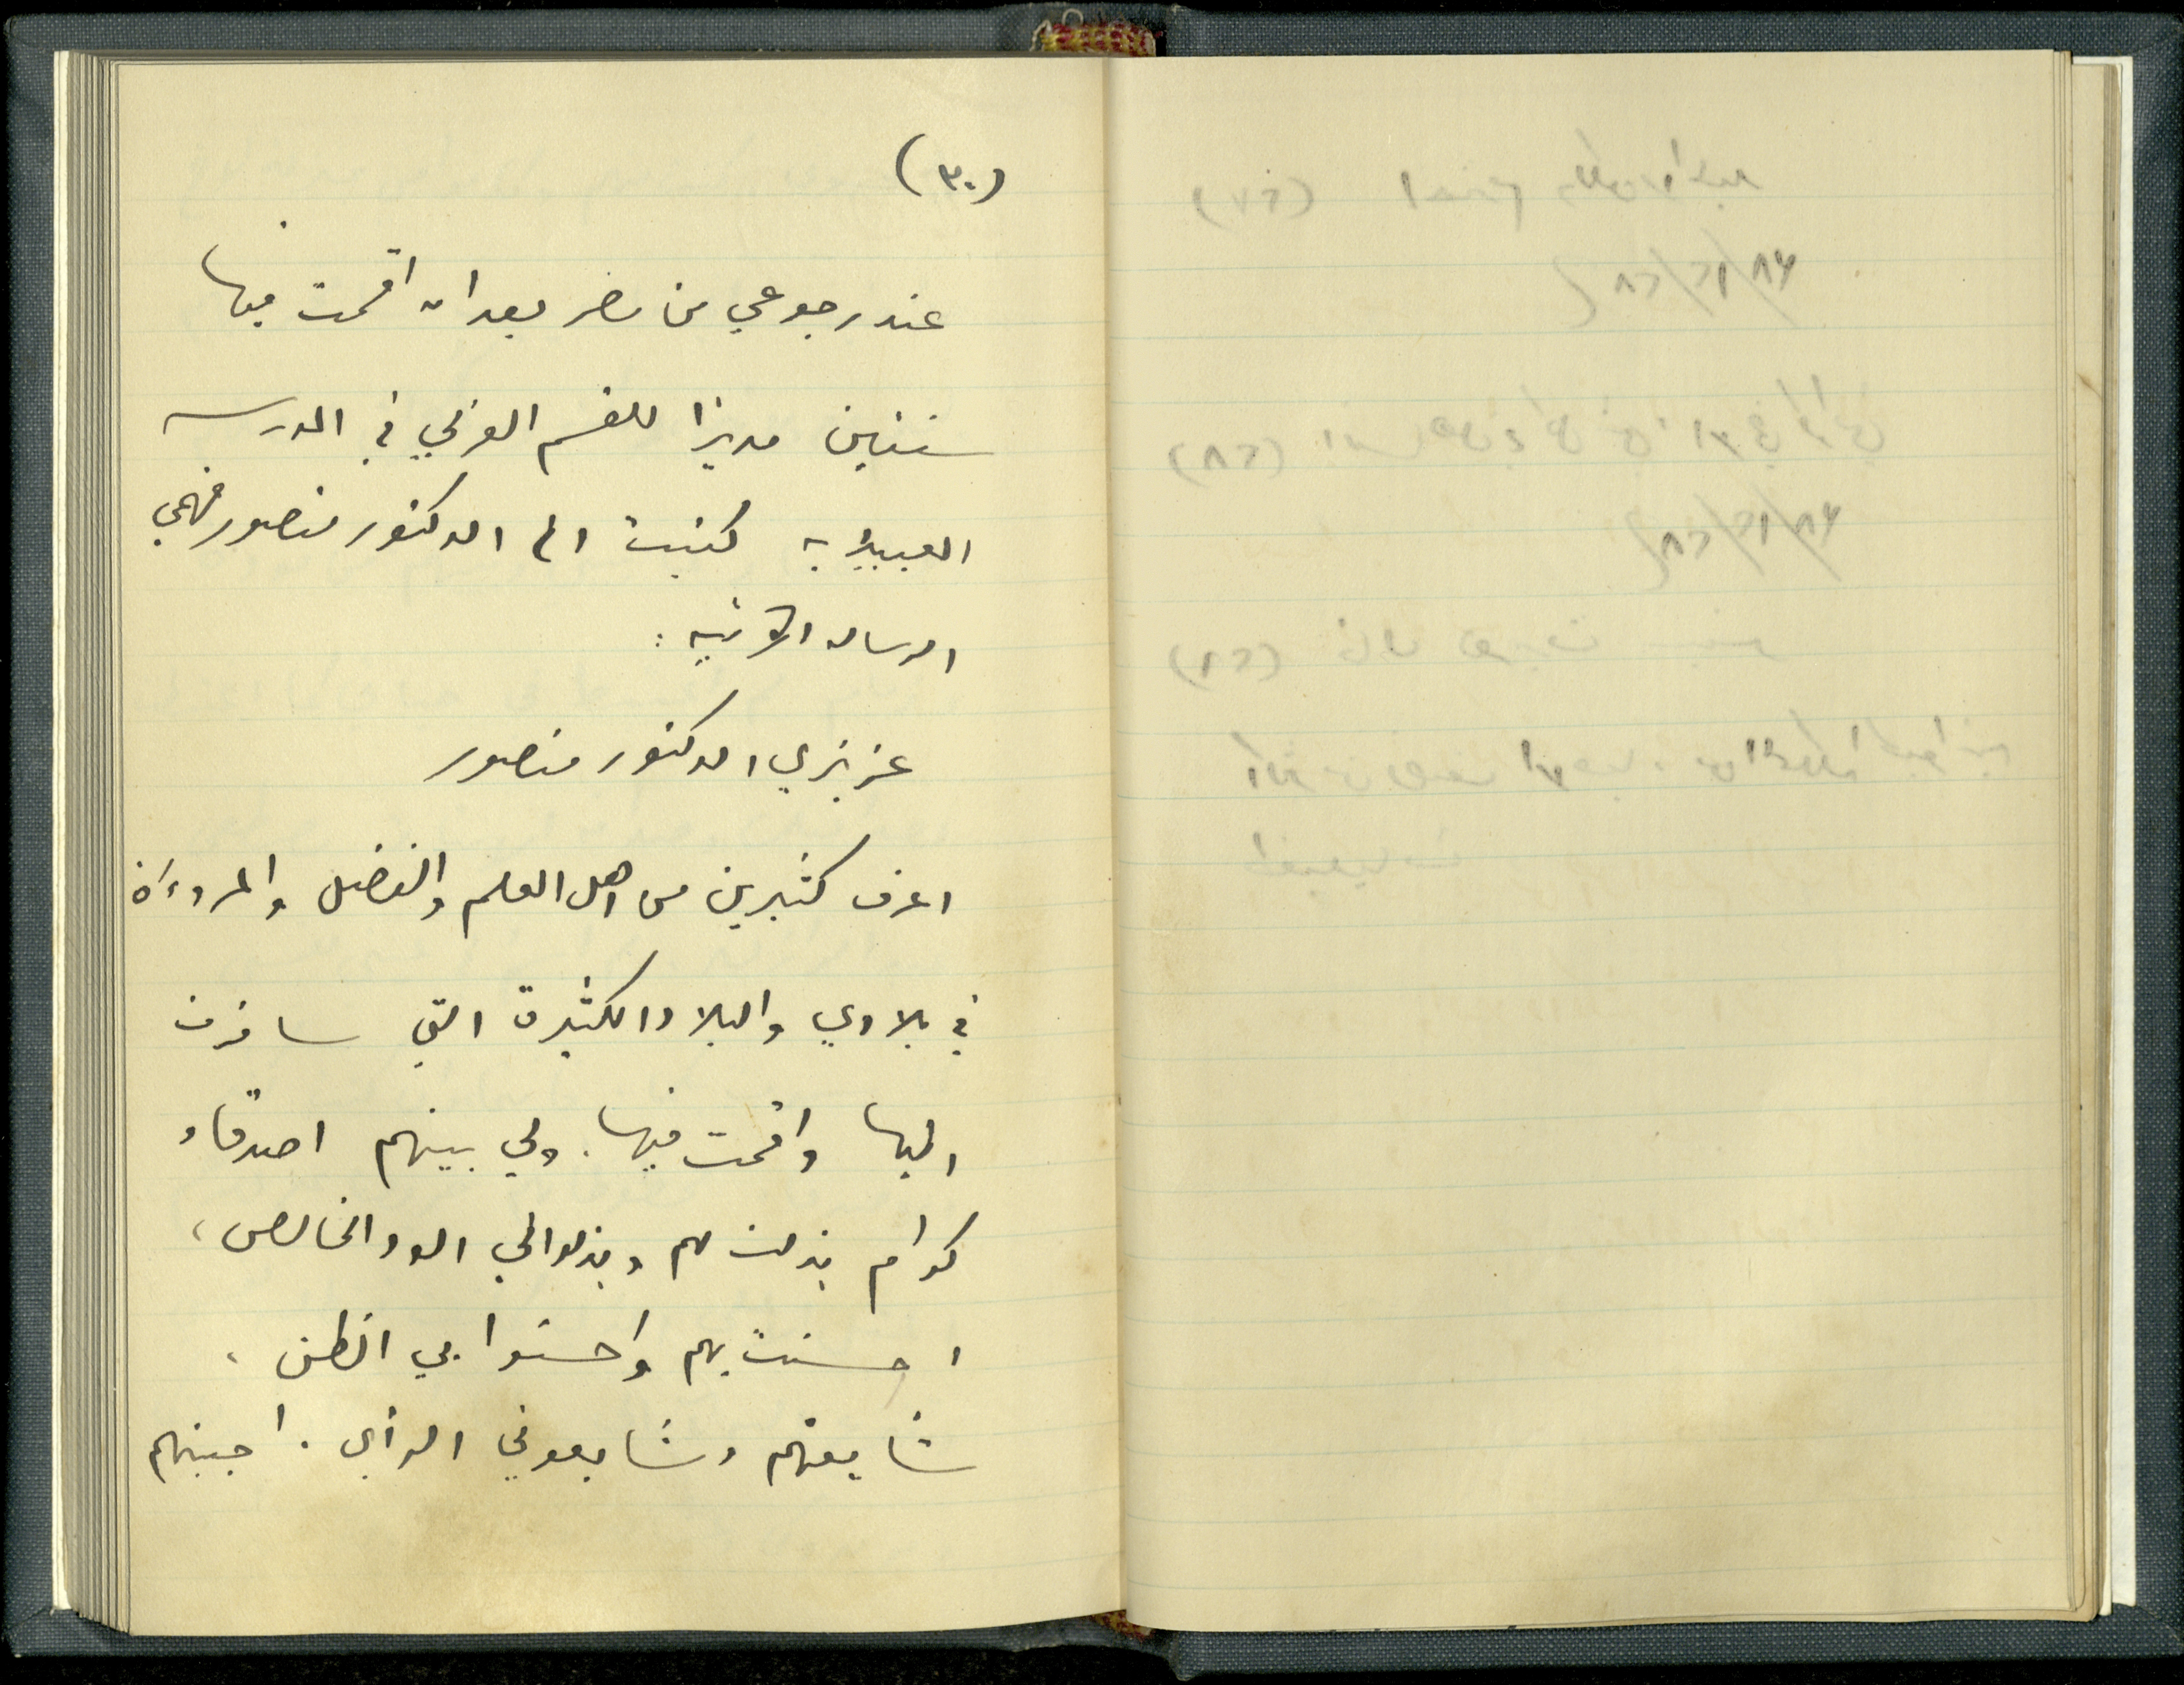 (٣٠)
عند رجوعي من مصر بعد ان اقمت فيها
سنتين مديرا للقسم العربي في المدرسه
العبيديه كتبت الى الدكتور منصور فهمي
الرساله الآتيه :
عزيزي الدكتور منصور
اعرف كثيرين من اهل العلم والفضل والمروءة
في بلادي والبلاد الكثيرة التي سافرت
اليها واقمت فيها. ولي بينهم اصدقاء
كرام بذلت لهم وبذلوا لي الود الخالص،
احسنت بهم واحسنوا بي الظن،
شايعتهم وشايعوني الرأي. اجبتهم